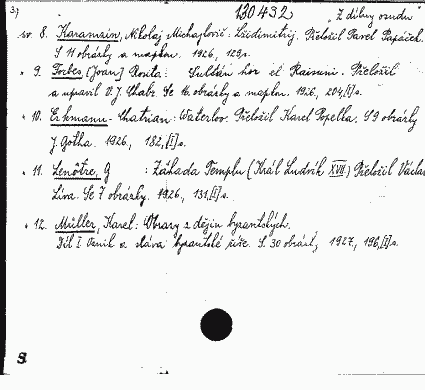 3)
130432 „Z dílny osudu"
sv. 8. Karamzin, Nikolaj Michajlovič: Lžidimitrij. Přeložil Pavel Papáček.
S 11 obrázky a mapkou. 1926, 129 s.
" 9. Forbes, [Joan] Rosita: Sultán hor el Raisuni. Přeložil
a upravil V. J. Chabr. Se 16 obrázky a mapkou. 1926, 204,[I] s.
" 10. Erkmann-Chatrian: Waterloo. Přeložil Karel Popelka. S 9 obrázky
J. Gotha. 1926, 182,[I] s.
" 11. Lenôtre, G : Záhada Templu (Král Ludvík XVII) Přeložil Václav
Líva. Se 7 obrázky. 1926, 131,[I] s.
" 12. Müller, Karel: Obrazy z dějin byzantských.
Díl I Vznik a sláva byzantské říše. S 30 obrázky, 1927, 196,[I] s.